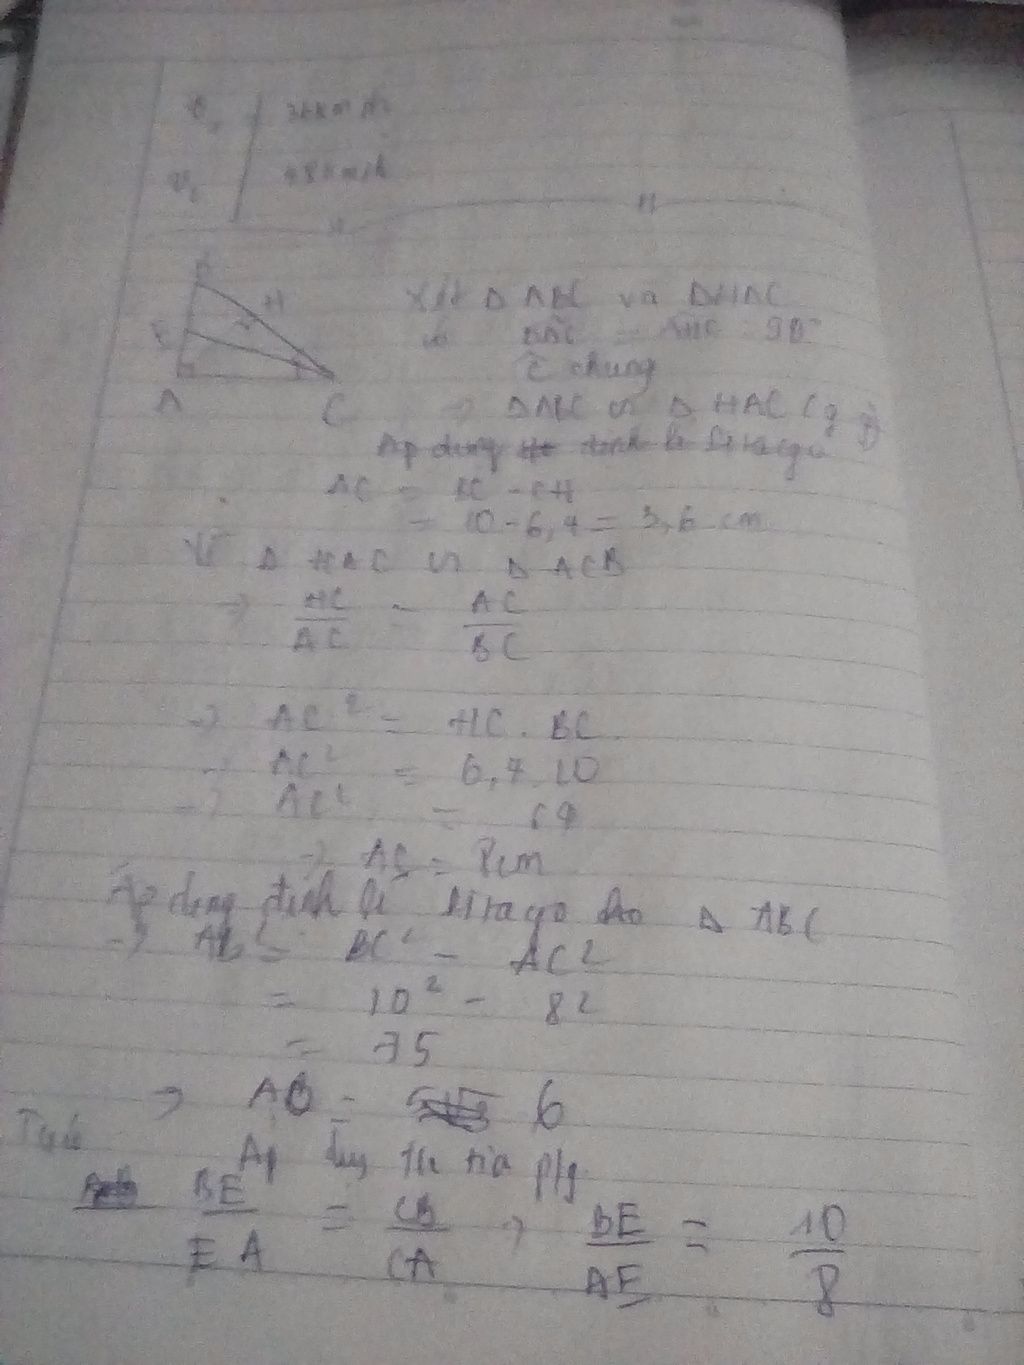 48km/h
H
E
A C
Xét Δ ABC và ΔHAC
có BAC = AHC 90°
C chung
=> ΔABC ∽ Δ HAC (g
Áp dụng định lí
AC = BC - CH
= 10 - 6,4 = 3,6 cm
Vì Δ HAC ∽ Δ ACB
=> HC/AC = AC/BC
=> AC² = HC . BC
=> AC² = 6,4 10
=> AC² = 64
=> AC = 8cm
Áp dụng định lí Δ ABC
=> AB² = BC² - AC2
= 10² - 82
= 35
=> AB = 6
Áp dụng t/c tia p/g
BE/EA = CB/CA => BE/AE = 10/8